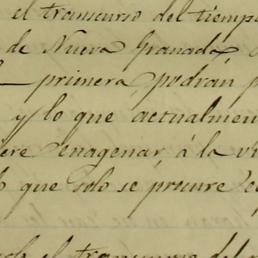 el transcurso del tiemp
de Nueva Granada,
primera podran p
y lo que actualmen
ere enagenar, á la vi
que solo se procure
el transcurso del